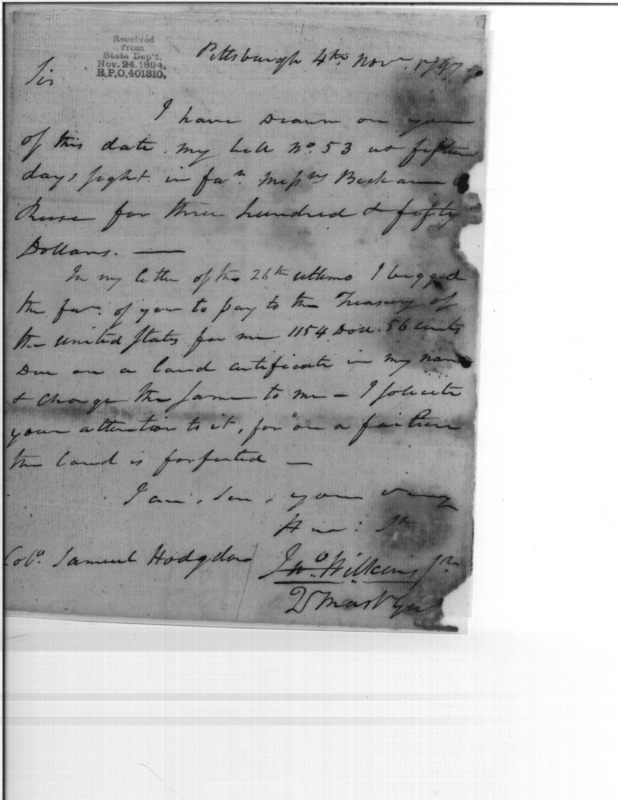 Received
from
State Dep't.
Nov. 24. 1894.
R.P.O. 401310.
Pittsburgh 4th Novr. 1797
Sir
I have drawn on you
of this date my bill No. 53 at fifteen
days sight in favr. Messrs
for three hundred & fifty
Dollars. —
In my letter of the 26th ultimo I begged
the favr. of you to pay to the Treasury of
the United States for me 1154 Doll. 56 cents
due on a land certificate in my name
& charge the same to me — I solicite
your attention to it, for on a failure
the land is forfeited —
I am, Sir, your very
Hum: St
Colo. Samuel Hodgdon
Jno. Wilkins Jr.
Q Mast Gen